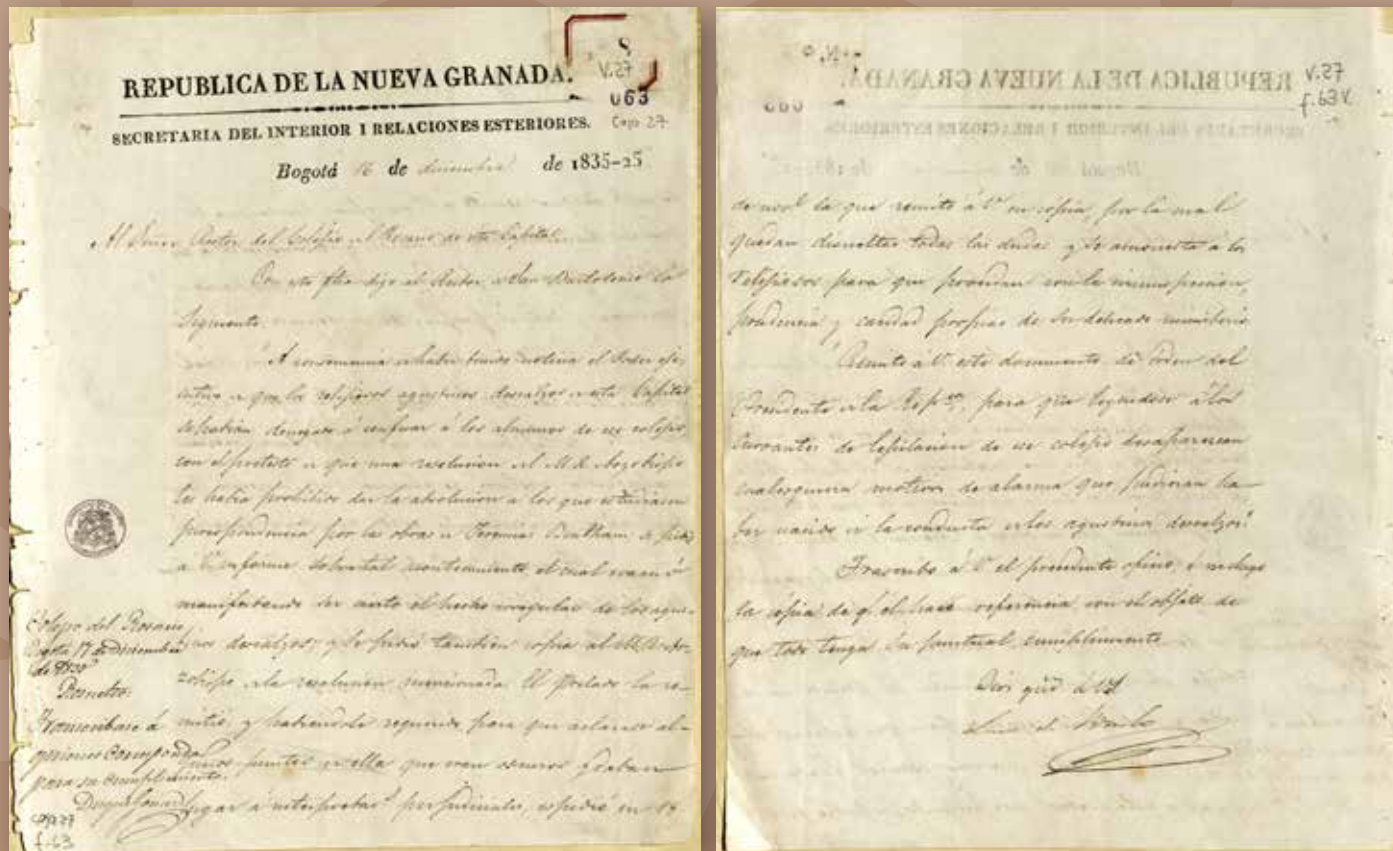 S
V.27
REPUBLICA DE LA NUEVA GRANADA.
063
SECRETARIA DEL INTERIOR I RELACIONES ESTERIORES.
Caja 27
Bogotá 16 de diciembre de 1835-25
Al Señor Rector del Colegio del Rosario de esta Capital.
Con esta fha digo al Rector de San Bartolomé lo
siguiente.
"A consecuencia de haber tenido noticia el Poder eje-
cutivo de que los relijiosos agustinos descalzos de esta Capital
se habian denegado á confesar á los alumnos de ese colegio,
con el pretesto de que una resolucion del M.R. Arzobispo
les habia prohibido dar la absolucion a los que estudiasen
jurisprudencia por las obras de Jeremias Bentham, se pidió
a U. informe sobre tal acontecimiento, el cual evacuó
manifestando ser cierto el hecho irregular de los agus-
tinos descalzos; y se pidió tambien copia al M.R. Ar-
zobispo de la resolucion mencionada. El Prelado la re-
mitió, y habiendole requerido para que aclarase al-
gunos puntos de ella que eran oscuros y daban
lugar á interpretac.s perjudiciales, espidió en 14
Colegio del Rosario
Bogotá 17 de Diciembre
de 1835
Transcribase á
quienes corresponda
para su cumplimiento.
Caja 27
f-63
V.27
f.63v.
de nov.e la que remito á U. en copia, por la cual
quedan disueltas todas las dudas y se amonesta a los
relijiosos para que procedan con la circunspeccion,
prudencia y caridad propias de su delicado ministerio.
Remito a U. este documento de orden del
Presidente de la Rep.ca para que leyendose á los
cursantes de lejislacion de ese colegio desaparezcan
cualesquiera motivos de alarma que pudieran ha-
ber nacido de la conducta de los agustinos descalzos."
Trascribo á U. el precedente oficio, é incluyo
la copia de q.e el hace referencia con el objeto de
que todo tenga su puntual cumplimiento.
Dios gũe á U.